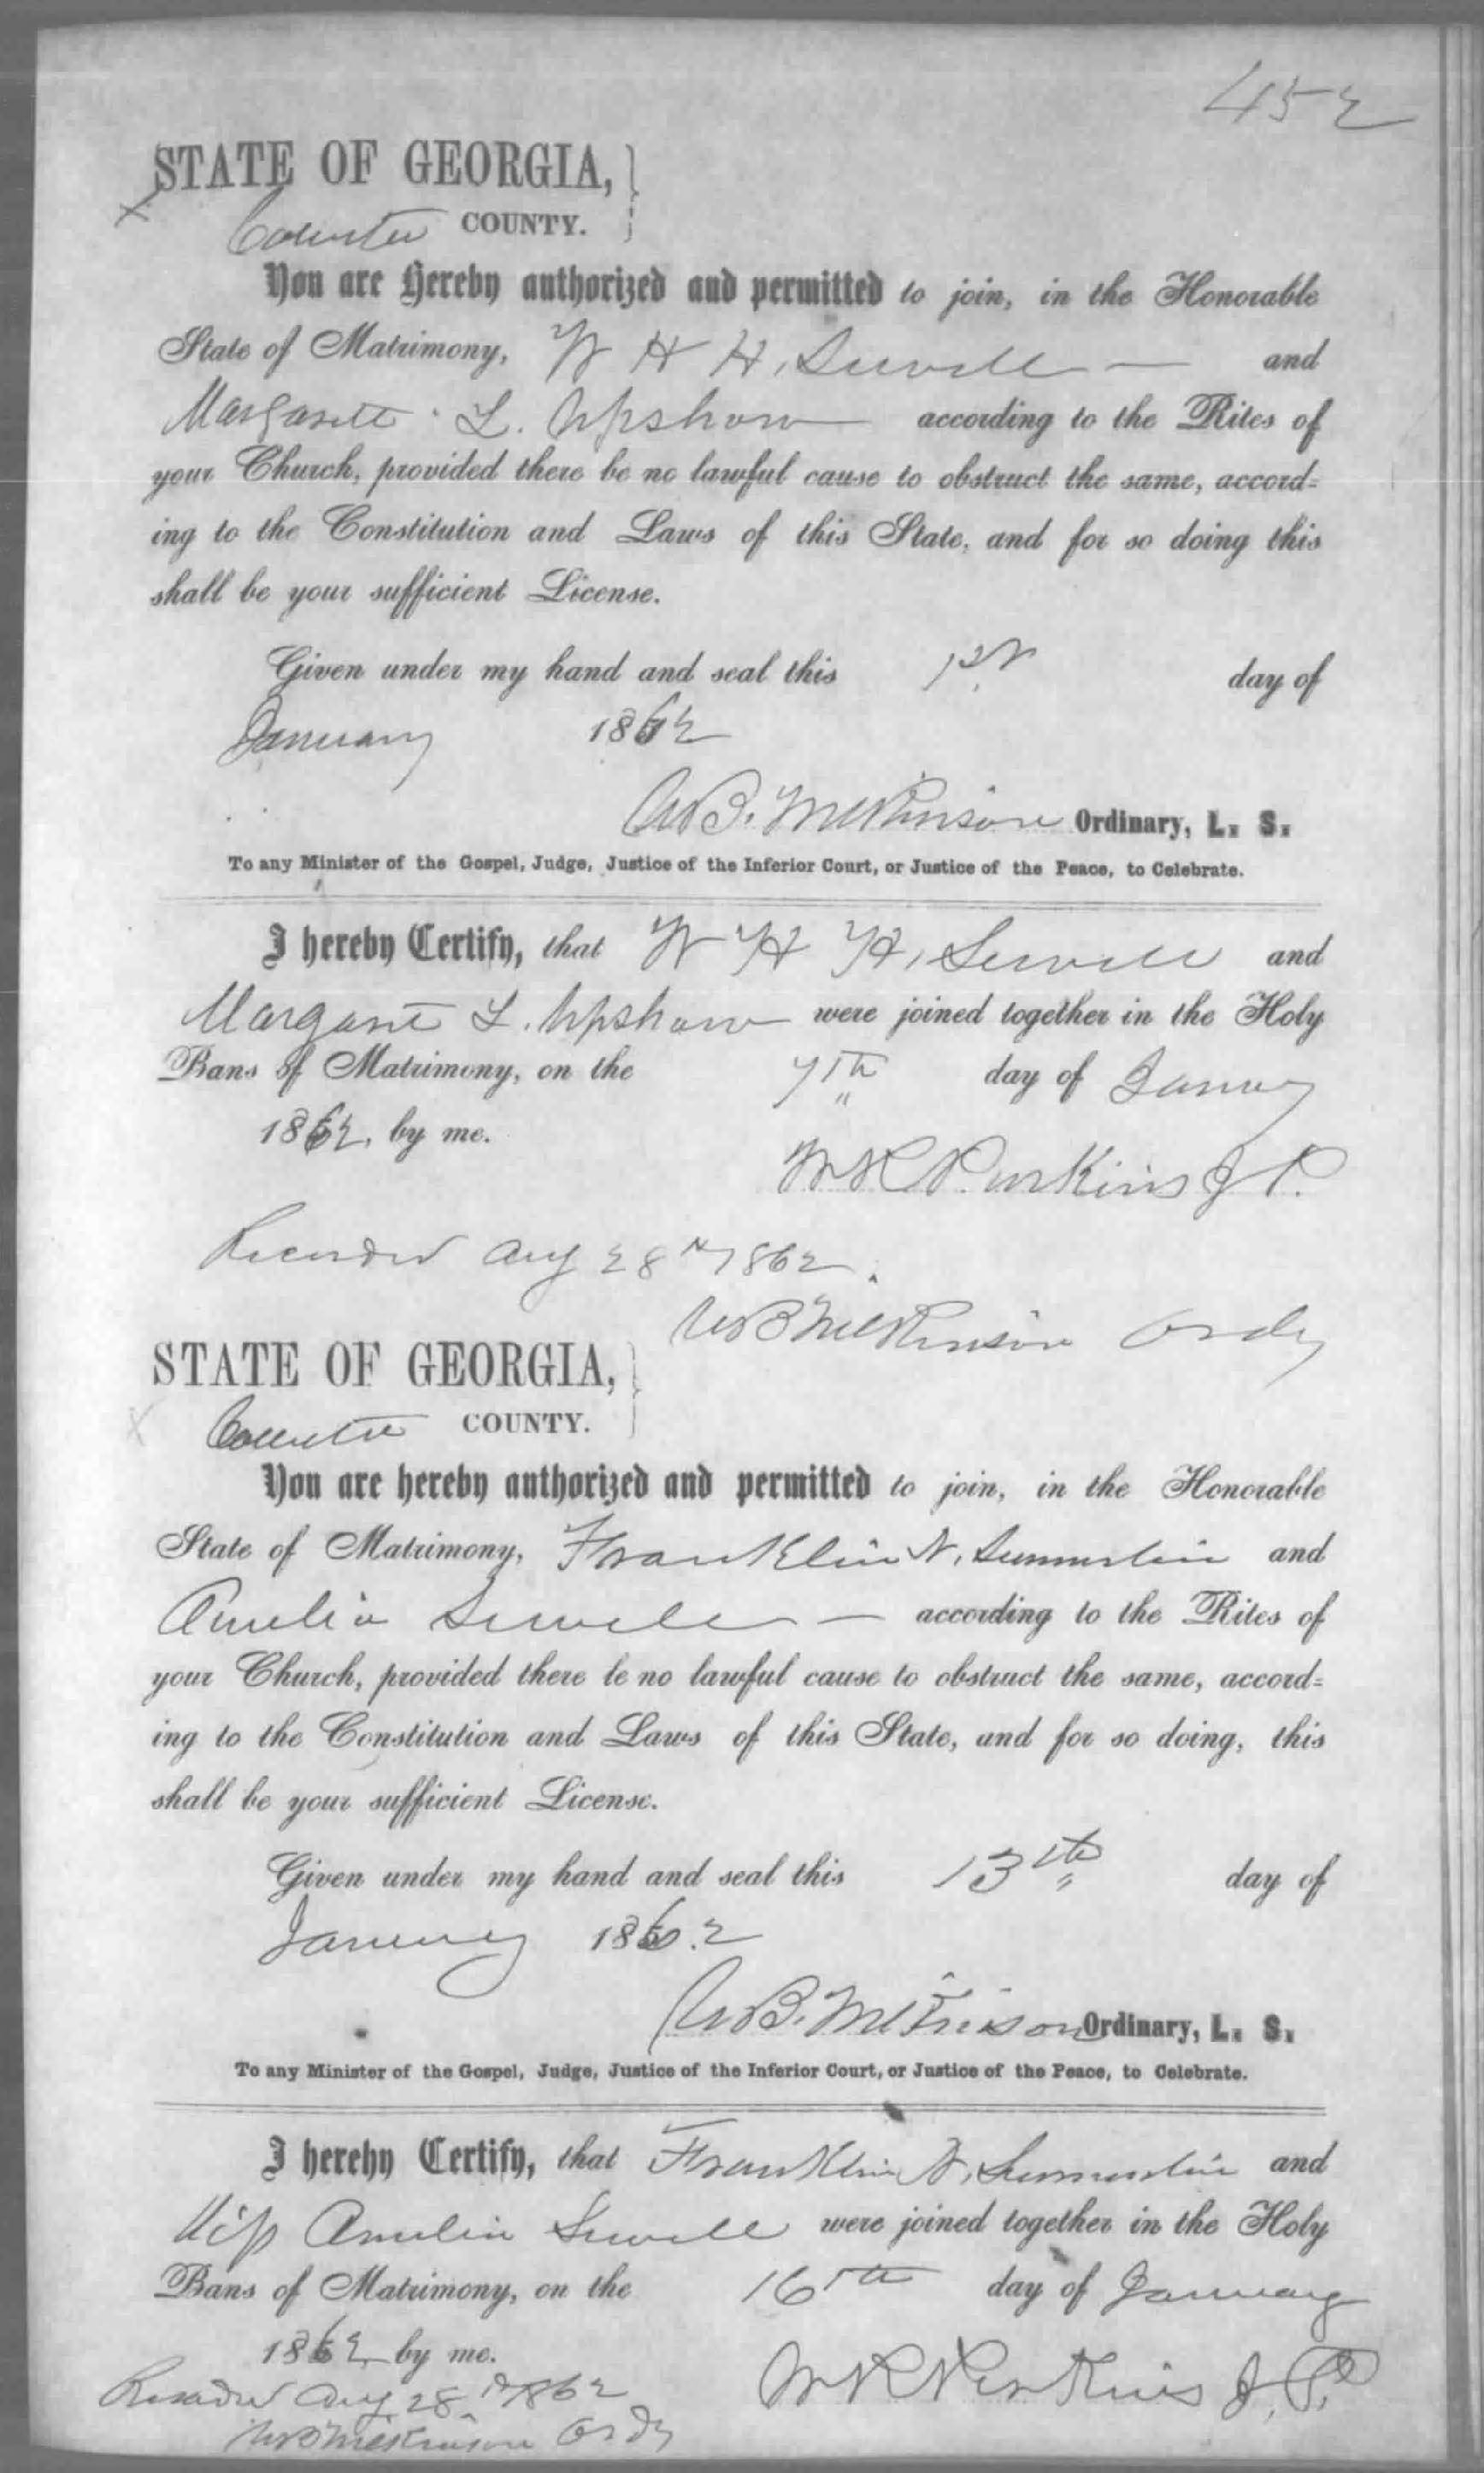 452
STATE OF GEORGIA,
Coweta COUNTY.
You are Hereby authorized and permitted to join, in the Honorable
State of Matrimony, W H H, Sewell — and
Margarett L. Upshaw according to the Rites of
your Church, provided there be no lawful cause to obstruct the same, accord=
ing to the Constitution and Laws of this State, and for so doing this
shall be your sufficient License.
Given under my hand and seal this 1st day of
January 1862
Ordinary, L. S.
To any Minister of the Gospel, Judge, Justice of the Inferior Court, or Justice of the Peace, to Celebrate.
I hereby Certify, that W H H, Sewell and
Margaret L. Upshaw were joined together in the Holy
Bans of Matrimony, on the 7th day of January
1862, by me.
W R Perkins J P.
Recorded Aug 28th 1862.
Ordy
STATE OF GEORGIA,
Coweta COUNTY.
You are hereby authorized and permitted to join, in the Honorable
State of Matrimony, Franklin N. Summerlin and
Amelia Sewell — according to the Rites of
your Church, provided there be no lawful cause to obstruct the same, accord=
ing to the Constitution and Laws of this State, and for so doing, this
shall be your sufficient License.
Given under my hand and seal this 13th day of
January 1862
Ordinary, L. S.
To any Minister of the Gospel, Judge, Justice of the Inferior Court, or Justice of the Peace, to Celebrate.
I hereby Certify, that Franklin N. Summerlin and
Miss Amelia Sewell were joined together in the Holy
Bans of Matrimony, on the 16th day of January
1862 by me.
W R Perkins J. P.
Recorded Aug 28th 1862
Ordy